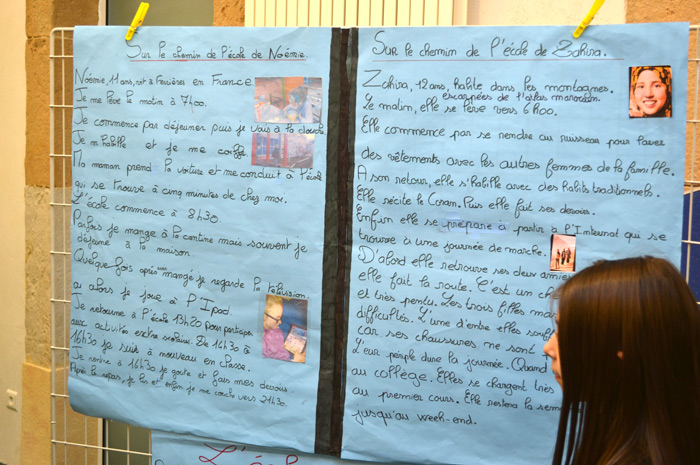 Sur le chemin de l'école de Noémie.
Noémie, 11 ans, vit à Ferrières en France
Je me lève le matin à 7h00.
Je commence par déjeuner puis je vais à la douche
Je m'habille et je me coiffe.
Ma maman prend la voiture et me conduit à l'école
qui se trouve à cinq minutes de chez moi.
L'école commence à 8h30.
Parfois je mange à la cantine mais souvent je
déjeune à la maison.
Quelque fois après mangé je regarde la télévision
ou alors je joue à l'Ipod.
Je retourne à l'école 13h20 pour participer
aux activités extra scolaire. De 14h30 à
16h30 je suis à nouveau en classe.
Je rentre à 16h30 je goute et fais mes devoirs
Après le repas, je lis et enfin je me couche vers 21h30.
Sur le chemin de l'école de Zahira.
Zahira, 12 ans, habite dans les montagnes
escarpées de l'atlas marocain.
Le matin, elle se lève vers 6h00.
Elle commence par se rendre au ruisseau pour laver
des vêtements avec les autres femmes de la famille.
A son retour, elle s'habille avec des habits traditionnels.
Elle récite le Coran. Puis elle fait ses devoirs.
Enfin elle se prépare à partir à l'Internat qui se
trouve à une journée de marche.
D'abord elle retrouve ses deux amies
elle fait la route. C'est un
et très pentu. Les trois filles
difficultés. L'une d'entre elles
car ses chaussures ne sont
Leur périple dure la journée. Quand
au collège. Elles se changent très
au premier cours. Elle restera la
jusqu'au week-end.
L'école